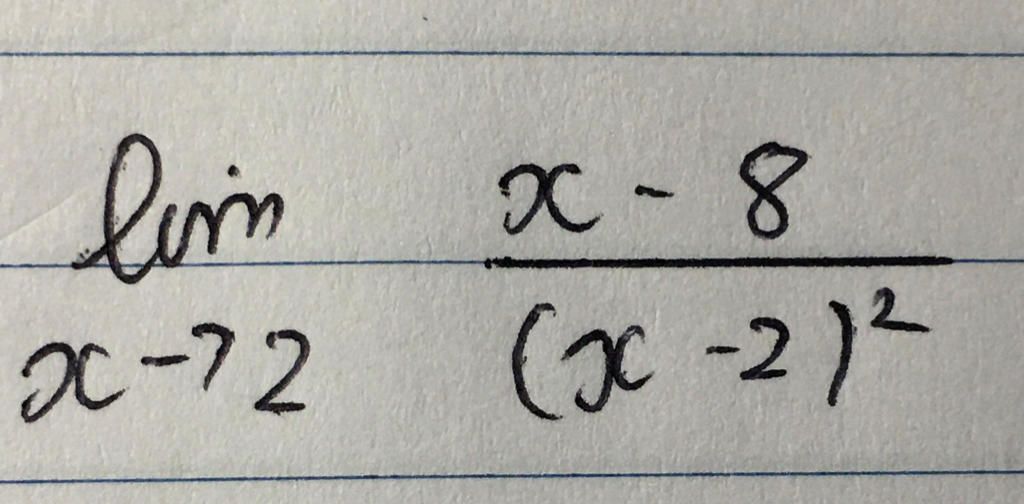 lim x - 8
x -> 2 (x - 2)²